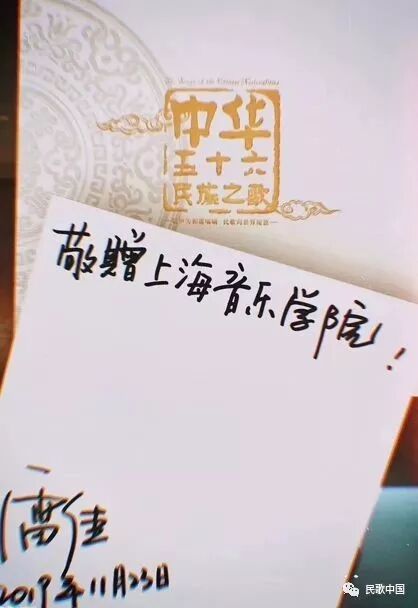 The Songs of the Chinese Nationalities
中华
五十六
民族之歌
敬赠上海音乐学院！
雷佳
2019年11月23日
民歌中国